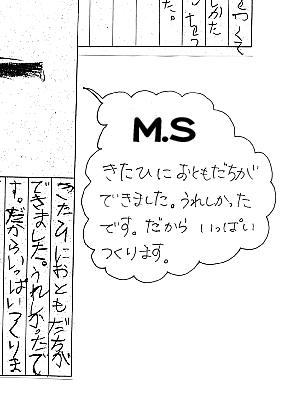 をつくって
しかた
ちょっ
た。
M.S
きたひにおともだちが
できました。うれしかった
です。だから いっぱい
つくります。
きたひにおともだちが
できました。うれしかったで
す。だからいっぱいつくりま